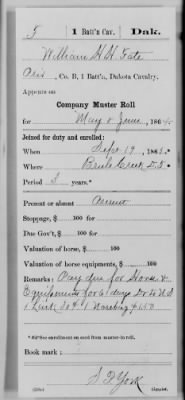 F | 1 Batt'n Cav. | Dak.
William H H Fate
, Co. B, 1 Batt'n, Dakota Cavalry.
Appears on
Company Muster Roll
for May & June, 1864.
Joined for duty and enrolled:
When Sept 19, 186
Where Brule Creek D.T.
Period 3 years.*
Present or absent
Stoppage, $ 100 for
Due Gov't, $ 100 for
Valuation of horse, $ 100
Valuation of horse equipments, $ 100
Remarks: Pay due for Horse &
Equipments for 6 days Dr to U.S.
1 30¢ 1 $1.50
*See enrollment on card from muster-in roll.
Book mark:
S D York
Copyist.